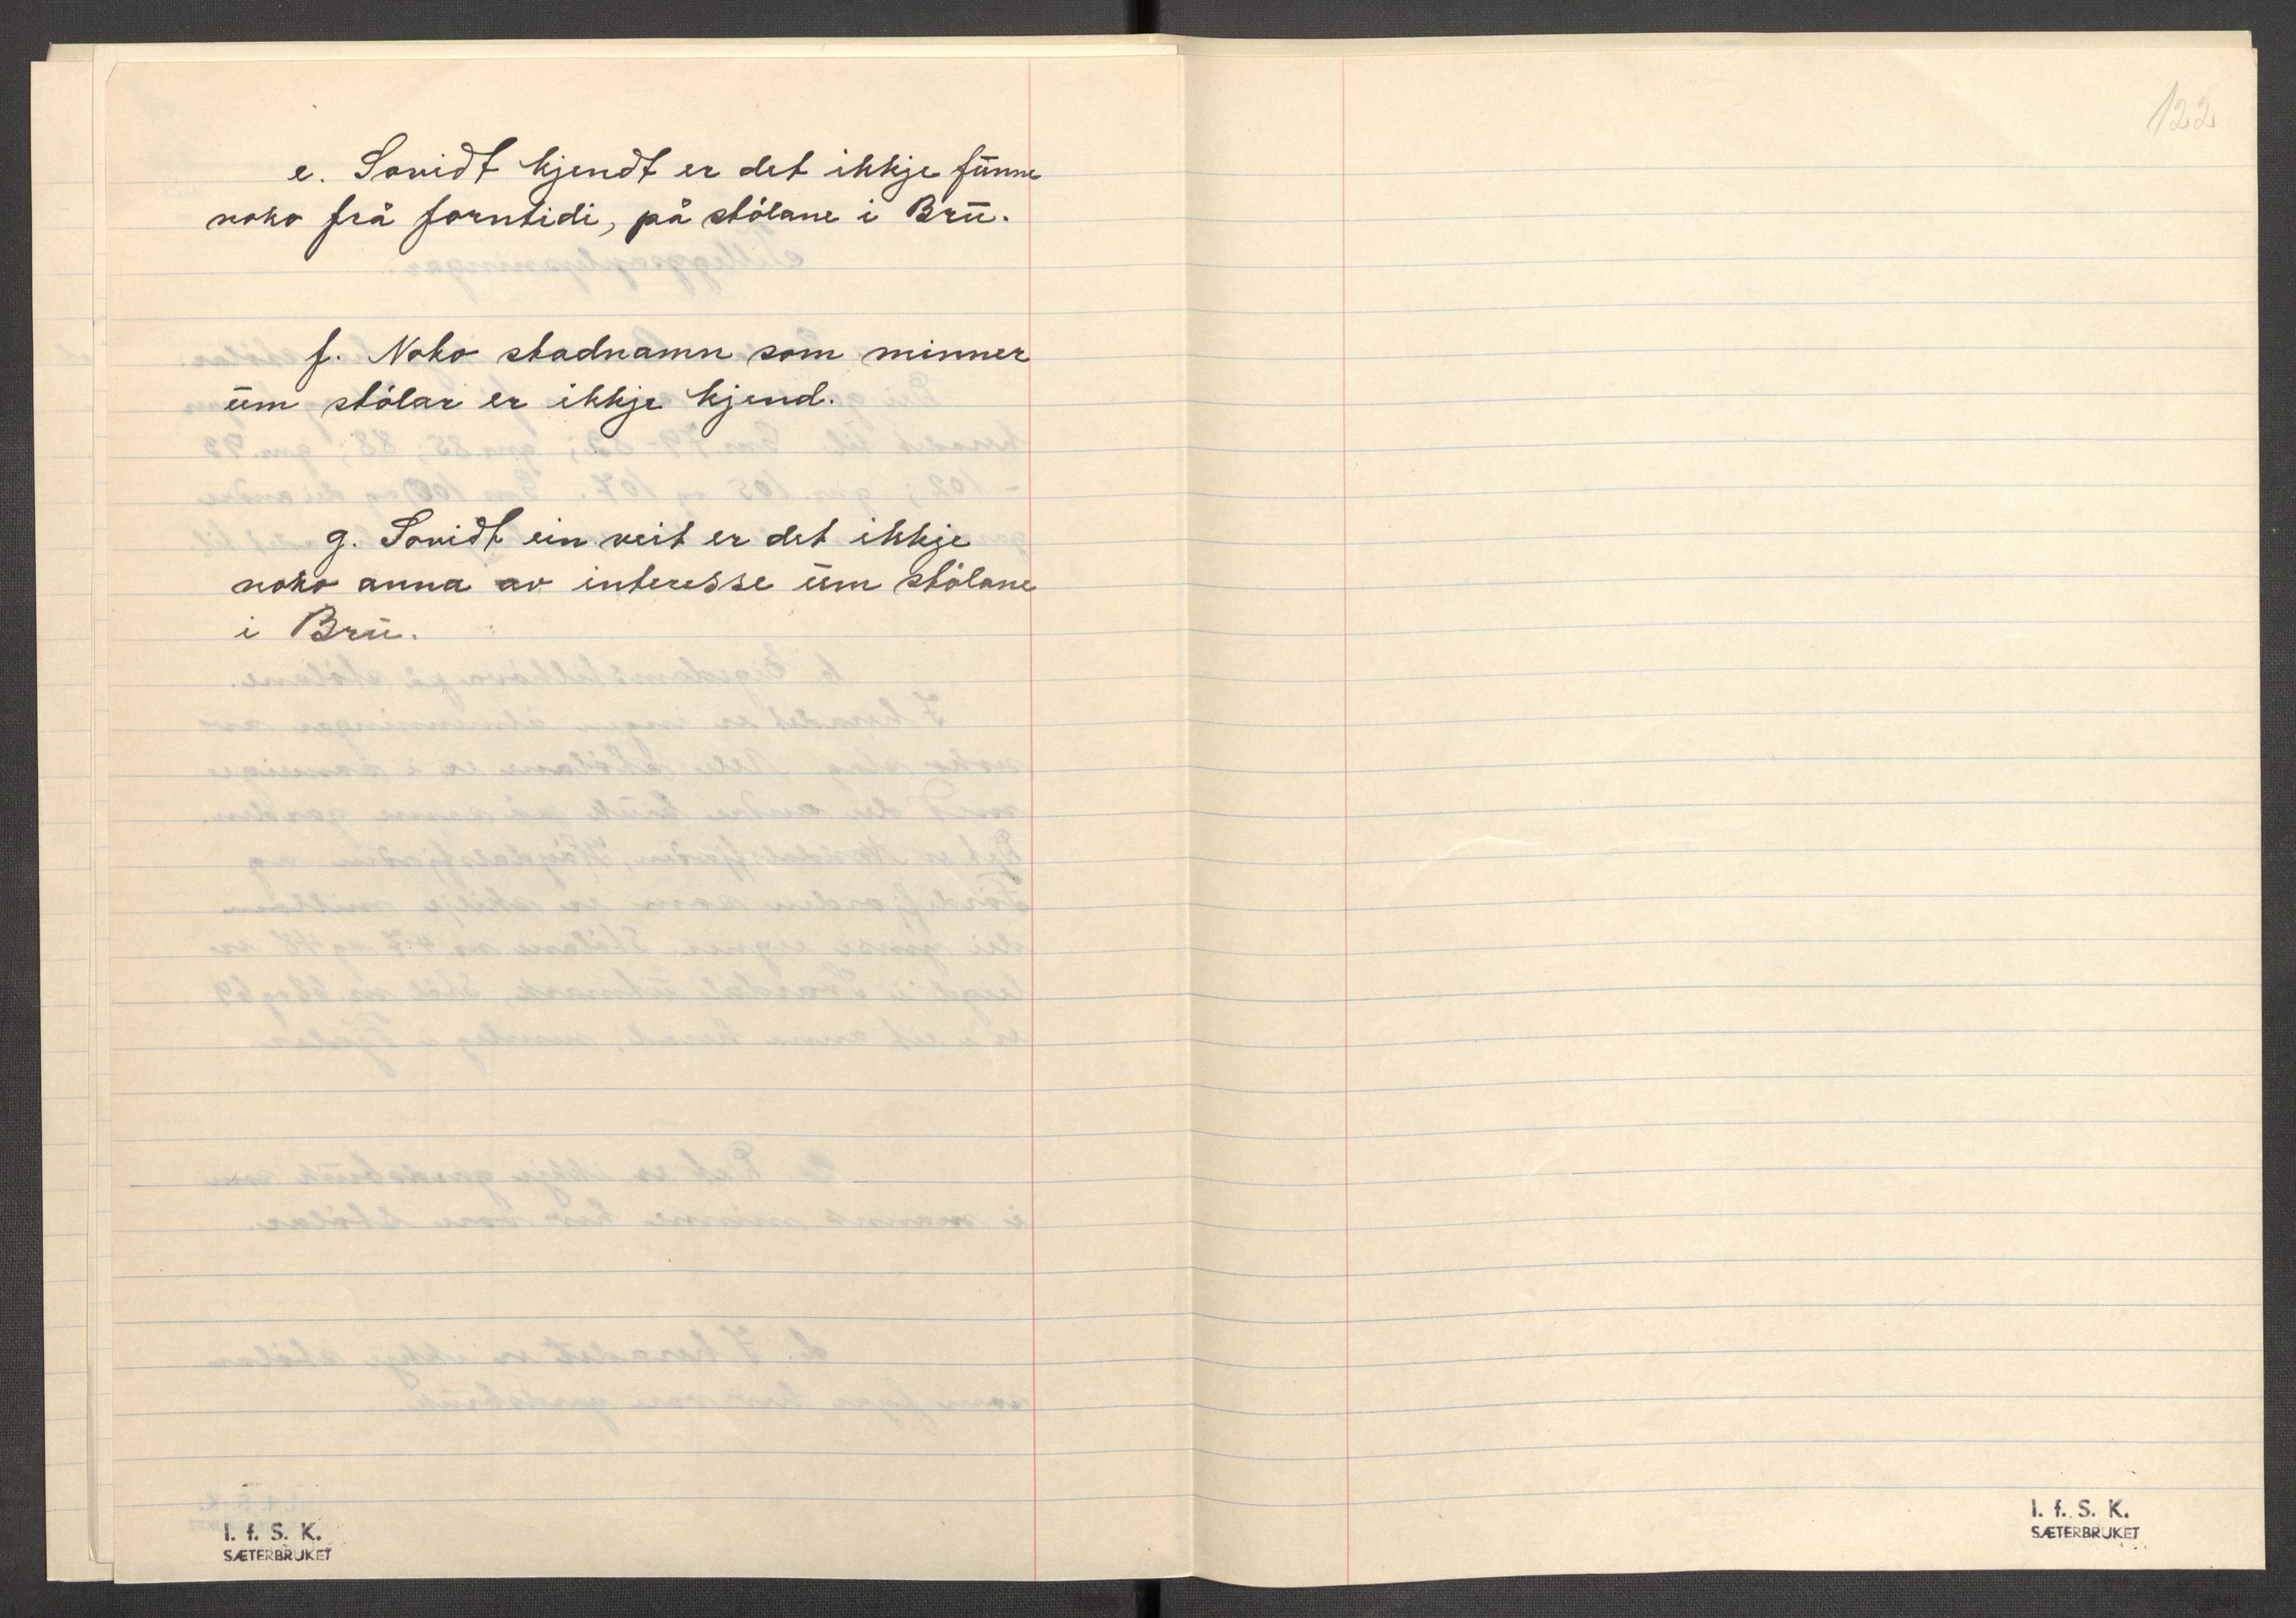 e. Sovidt kjendt er det ikkje funne
noko frå forntidi, på stölane i Bru.
f. Noko stadnamn som minner
um stölar er ikkje kjend.
g. Sovidt ein veit er det ikkje
noko anna av interesse um stölane
i Bru.
I. f. S. K.
SÆTERBRUKET
122
I. f. S. K.
SÆTERBRUKET